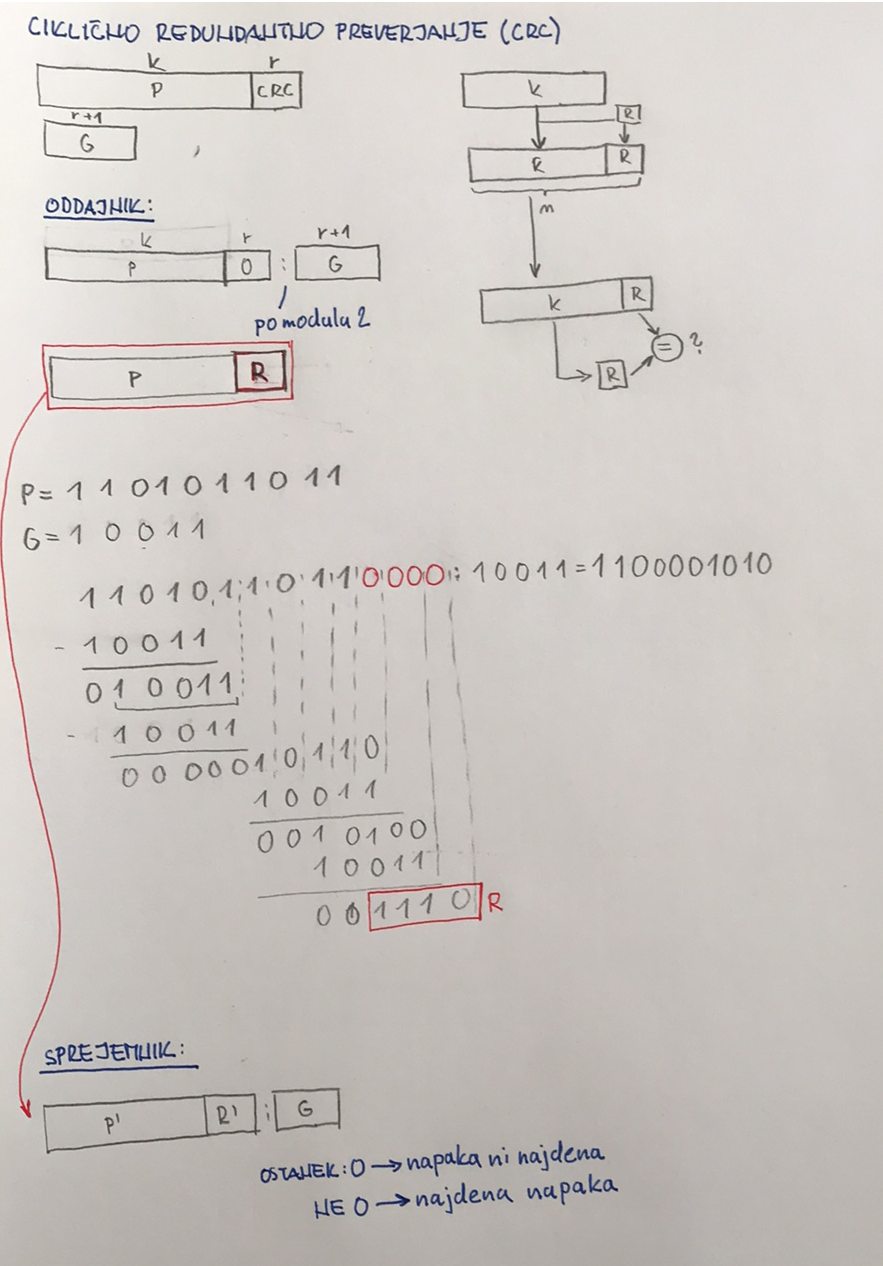 CIKLIČNO REDUNDANTNO PREVERJANJE (CRC)
k r
P CRC
r+1
G
k
R
R R
m
k R
R = ?
ODDAJNIK:
k r r+1
P 0 : G
po modulu 2
P R
P= 1 1 0 1 0 1 1 0 1 1
G= 1 0 0 1 1
1 1 0 1 0 1 1 0 1 1 0 0 0 0 : 1 0 0 1 1 = 1 1 0 0 0 0 1 0 1 0
- 1 0 0 1 1
0 1 0 0 1 1
- 1 0 0 1 1
0 0 0 0 0 1 0 1 1 0
1 0 0 1 1
0 0 1 0 1 0 0
1 0 0 1 1
0 0 1 1 1 0 R
SPREJEMNIK:
P' R' : G
OSTANEK: 0 → napaka ni najdena
NE 0 → najdena napaka